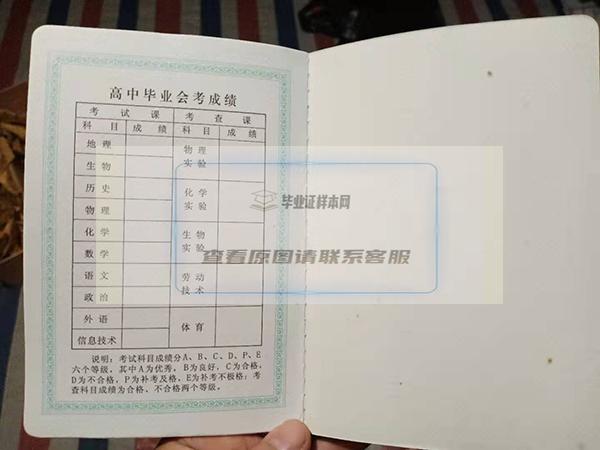 高中毕业会考成绩
考试课 考查课
科目 成绩 科目 成绩
地理 物理实验
生物
历史 化学实验
物理
化学 生物实验
数学
语文 劳动技术
政治
外语 体育
信息技术
说明：考试科目成绩分A、B、C、D、P、E
六个等级。其中A为优秀，B为良好，C为合格，
D为不合格，P为补考及格，E为补考不极格；考
查科目成绩为合格、不合格两个等级。
毕业证样本网
查看原图请联系客服